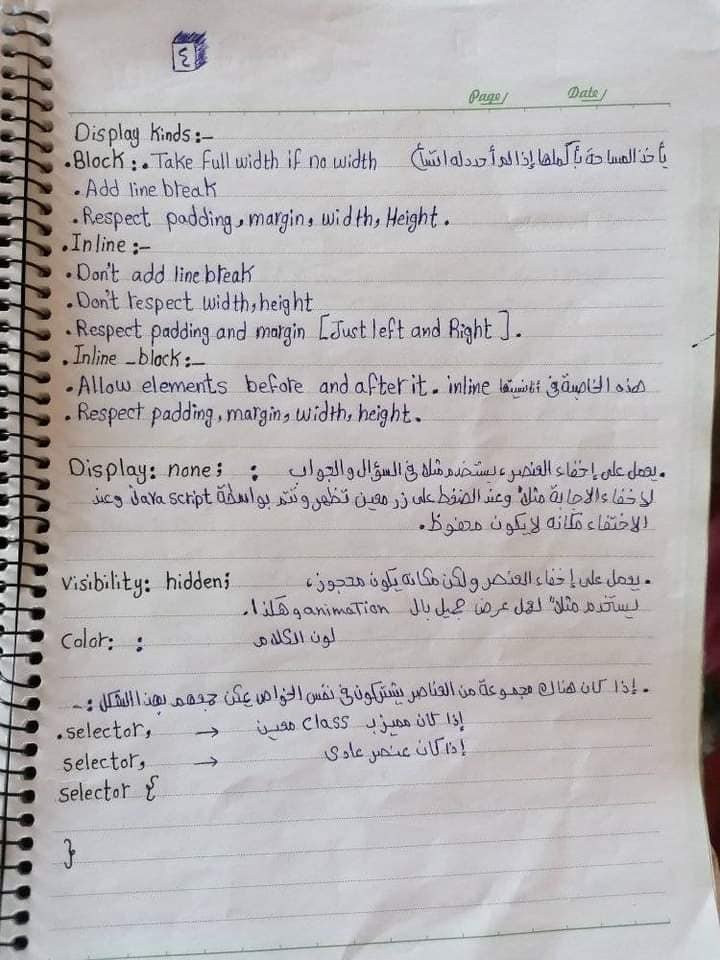 ٤
Page/ Date/
Display Kinds:-
.Block: . Take full width if no width (يأخذ المساحة بأكملها إذا لم أحدد له
. Add line break
. Respect padding, margin, width, Height.
. Inline :-
. Don't add line break
. Don't respect width, height
. Respect padding and margin [Just left and Right].
. Inline _block:-
. Allow elements before and after it. inline هذه الخاصية في
. Respect padding, margin, width, height.
Display: none; : .يعمل على إخفاء العنصر، يستخدم مثلا في السؤال والجواب
لإخفاء الاجابة مثلاً وعند الضغط على زر معين تظهر وتتم بواسطة Java script وعند
الاختفاء مكانه لا يكون محفوظ.
visibility: hidden; .يعمل على إخفاء العنصر ولكن مكانه يكون محجوز،
يستخدم مثلاً لعمل عرض جميل بال animation وهكذا.
Color: : لون الكلام
.إذا كان هناك مجموعة من العناصر يشتركون في نفس الخواص يمكن جمعهم بهذا الشكل :-
.selector, → إذا كان مميز ب class معين
selector, → إذا كان عنصر عادى
selector {
}